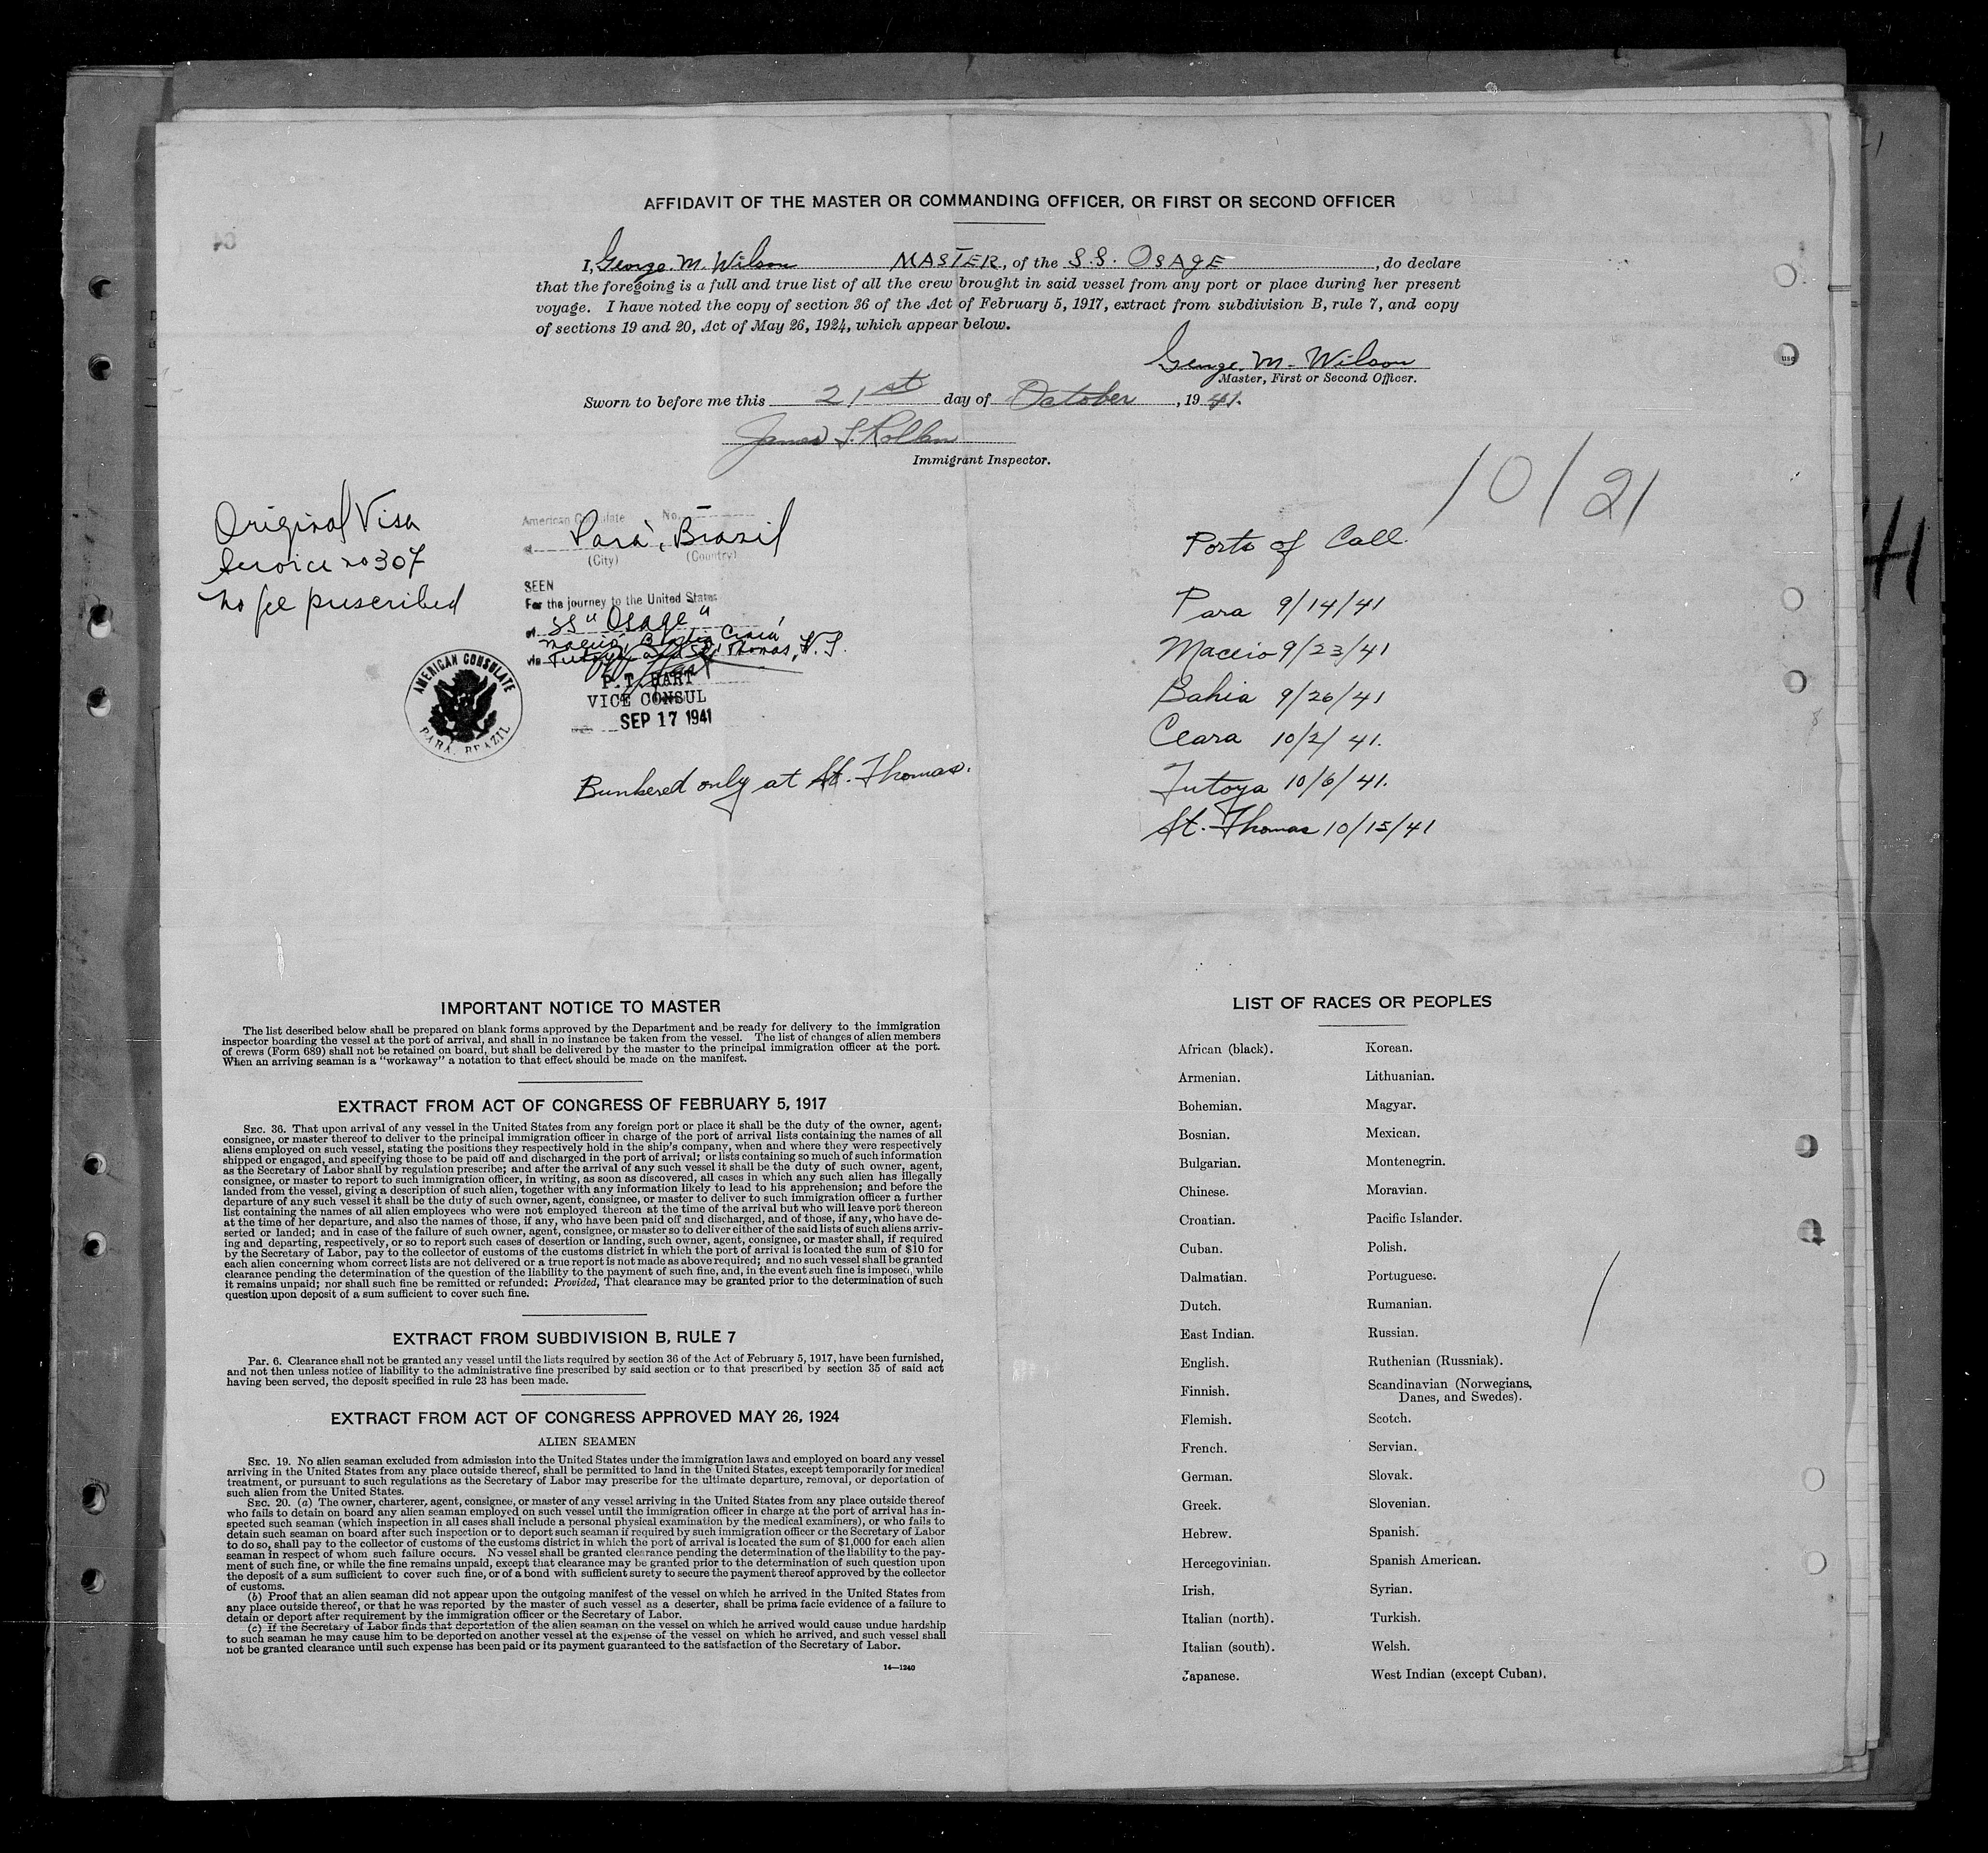 AFFIDAVIT OF THE MASTER OR COMMANDING OFFICER, OR FIRST OR SECOND OFFICER
I, George. M. Wilson MASTER, of the S.S. OSAGE, do declare
that the foregoing is a full and true list of all the crew brought in said vessel from any port or place during her present
voyage. I have noted the copy of section 36 of the Act of February 5, 1917, extract from subdivision B, rule 7, and copy
of sections 19 and 20, Act of May 26, 1924, which appear below.
George. M. Wilson
Master, First or Second Officer.
Sworn to before me this 21st day of October, 1941.
James
Immigrant Inspector.
10/21
Original Visa
Service no 307
no fee prescribed
American Consulate No.
Pará, Brazil
(City) (Country)
SEEN
For the journey to the United States
SS "Osage"
via
Thomas, V.I.
P. T. HART
VICE CONSUL
SEP 17 1941
AMERICAN CONSULATE
PARÁ, BRAZIL
Bunkered only at St. Thomas.
Ports of Call.
Para 9/14/41
Maceio 9/23/41
Bahia 9/26/41
Ceara 10/2/41.
Tutoya 10/6/41.
St. Thomas 10/15/41
IMPORTANT NOTICE TO MASTER
The list described below shall be prepared on blank forms approved by the Department and be ready for delivery to the immigration
inspector boarding the vessel at the port of arrival, and shall in no instance be taken from the vessel. The list of changes of alien members
of crews (Form 689) shall not be retained on board, but shall be delivered by the master to the principal immigration officer at the port.
When an arriving seaman is a "workaway" a notation to that effect should be made on the manifest.
EXTRACT FROM ACT OF CONGRESS OF FEBRUARY 5, 1917
SEC. 36. That upon arrival of any vessel in the United States from any foreign port or place it shall be the duty of the owner, agent,
consignee, or master thereof to deliver to the principal immigration officer in charge of the port of arrival lists containing the names of all
aliens employed on such vessel, stating the positions they respectively hold in the ship's company, when and where they were respectively
shipped or engaged, and specifying those to be paid off and discharged in the port of arrival; or lists containing so much of such information
as the Secretary of Labor shall by regulation prescribe; and after the arrival of any such vessel it shall be the duty of such owner, agent,
consignee, or master to report to such immigration officer, in writing, as soon as discovered, all cases in which any such alien has illegally
landed from the vessel, giving a description of such alien, together with any information likely to lead to his apprehension; and before the
departure of any such vessel it shall be the duty of such owner, agent, consignee, or master to deliver to such immigration officer a further
list containing the names of all alien employees who were not employed thereon at the time of the arrival but who will leave port thereon
at the time of her departure, and also the names of those, if any, who have been paid off and discharged, and of those, if any, who have de-
serted or landed; and in case of the failure of such owner, agent, consignee, or master so to deliver either of the said lists of such aliens arriv-
ing and departing, respectively, or so to report such cases of desertion or landing, such owner, agent, consignee, or master shall, if required
by the Secretary of Labor, pay to the collector of customs of the customs district in which the port of arrival is located the sum of $10 for
each alien concerning whom correct lists are not delivered or a true report is not made as above required; and no such vessel shall be granted
clearance pending the determination of the question of the liability to the payment of such fine, and, in the event such fine is imposed, while
it remains unpaid; nor shall such fine be remitted or refunded: Provided, That clearance may be granted prior to the determination of such
question upon deposit of a sum sufficient to cover such fine.
EXTRACT FROM SUBDIVISION B, RULE 7
Par. 6. Clearance shall not be granted any vessel until the lists required by section 36 of the Act of February 5, 1917, have been furnished,
and not then unless notice of liability to the administrative fine prescribed by said section or to that prescribed by section 35 of said act
having been served, the deposit specified in rule 23 has been made.
EXTRACT FROM ACT OF CONGRESS APPROVED MAY 26, 1924
ALIEN SEAMEN
SEC. 19. No alien seaman excluded from admission into the United States under the immigration laws and employed on board any vessel
arriving in the United States from any place outside thereof, shall be permitted to land in the United States, except temporarily for medical
treatment, or pursuant to such regulations as the Secretary of Labor may prescribe for the ultimate departure, removal, or deportation of
such alien from the United States.
SEC. 20. (a) The owner, charterer, agent, consignee, or master of any vessel arriving in the United States from any place outside thereof
who fails to detain on board any alien seaman employed on such vessel until the immigration officer in charge at the port of arrival has in-
spected such seaman (which inspection in all cases shall include a personal physical examination by the medical examiners), or who fails to
detain such seaman on board after such inspection or to deport such seaman if required by such immigration officer or the Secretary of Labor
to do so, shall pay to the collector of customs of the customs district in which the port of arrival is located the sum of $1,000 for each alien
seaman in respect of whom such failure occurs. No vessel shall be granted clearance pending the determination of the liability to the pay-
ment of such fine, or while the fine remains unpaid, except that clearance may be granted prior to the determination of such question upon
the deposit of a sum sufficient to cover such fine, or of a bond with sufficient surety to secure the payment thereof approved by the collector
of customs.
(b) Proof that an alien seaman did not appear upon the outgoing manifest of the vessel on which he arrived in the United States from
any place outside thereof, or that he was reported by the master of such vessel as a deserter, shall be prima facie evidence of a failure to
detain or deport after requirement by the immigration officer or the Secretary of Labor.
(c) If the Secretary of Labor finds that deportation of the alien seaman on the vessel on which he arrived would cause undue hardship
to such seaman he may cause him to be deported on another vessel at the expense of the vessel on which he arrived, and such vessel shall
not be granted clearance until such expense has been paid or its payment guaranteed to the satisfaction of the Secretary of Labor.
14—1240
LIST OF RACES OR PEOPLES
African (black). Korean.
Armenian. Lithuanian.
Bohemian. Magyar.
Bosnian. Mexican.
Bulgarian. Montenegrin.
Chinese. Moravian.
Croatian. Pacific Islander.
Cuban. Polish.
Dalmatian. Portuguese.
Dutch. Rumanian.
East Indian. Russian.
English. Ruthenian (Russniak).
Finnish. Scandinavian (Norwegians,
Danes, and Swedes).
Flemish. Scotch.
French. Servian.
German. Slovak.
Greek. Slovenian.
Hebrew. Spanish.
Hercegovinian. Spanish American.
Irish. Syrian.
Italian (north). Turkish.
Italian (south). Welsh.
Japanese. West Indian (except Cuban).